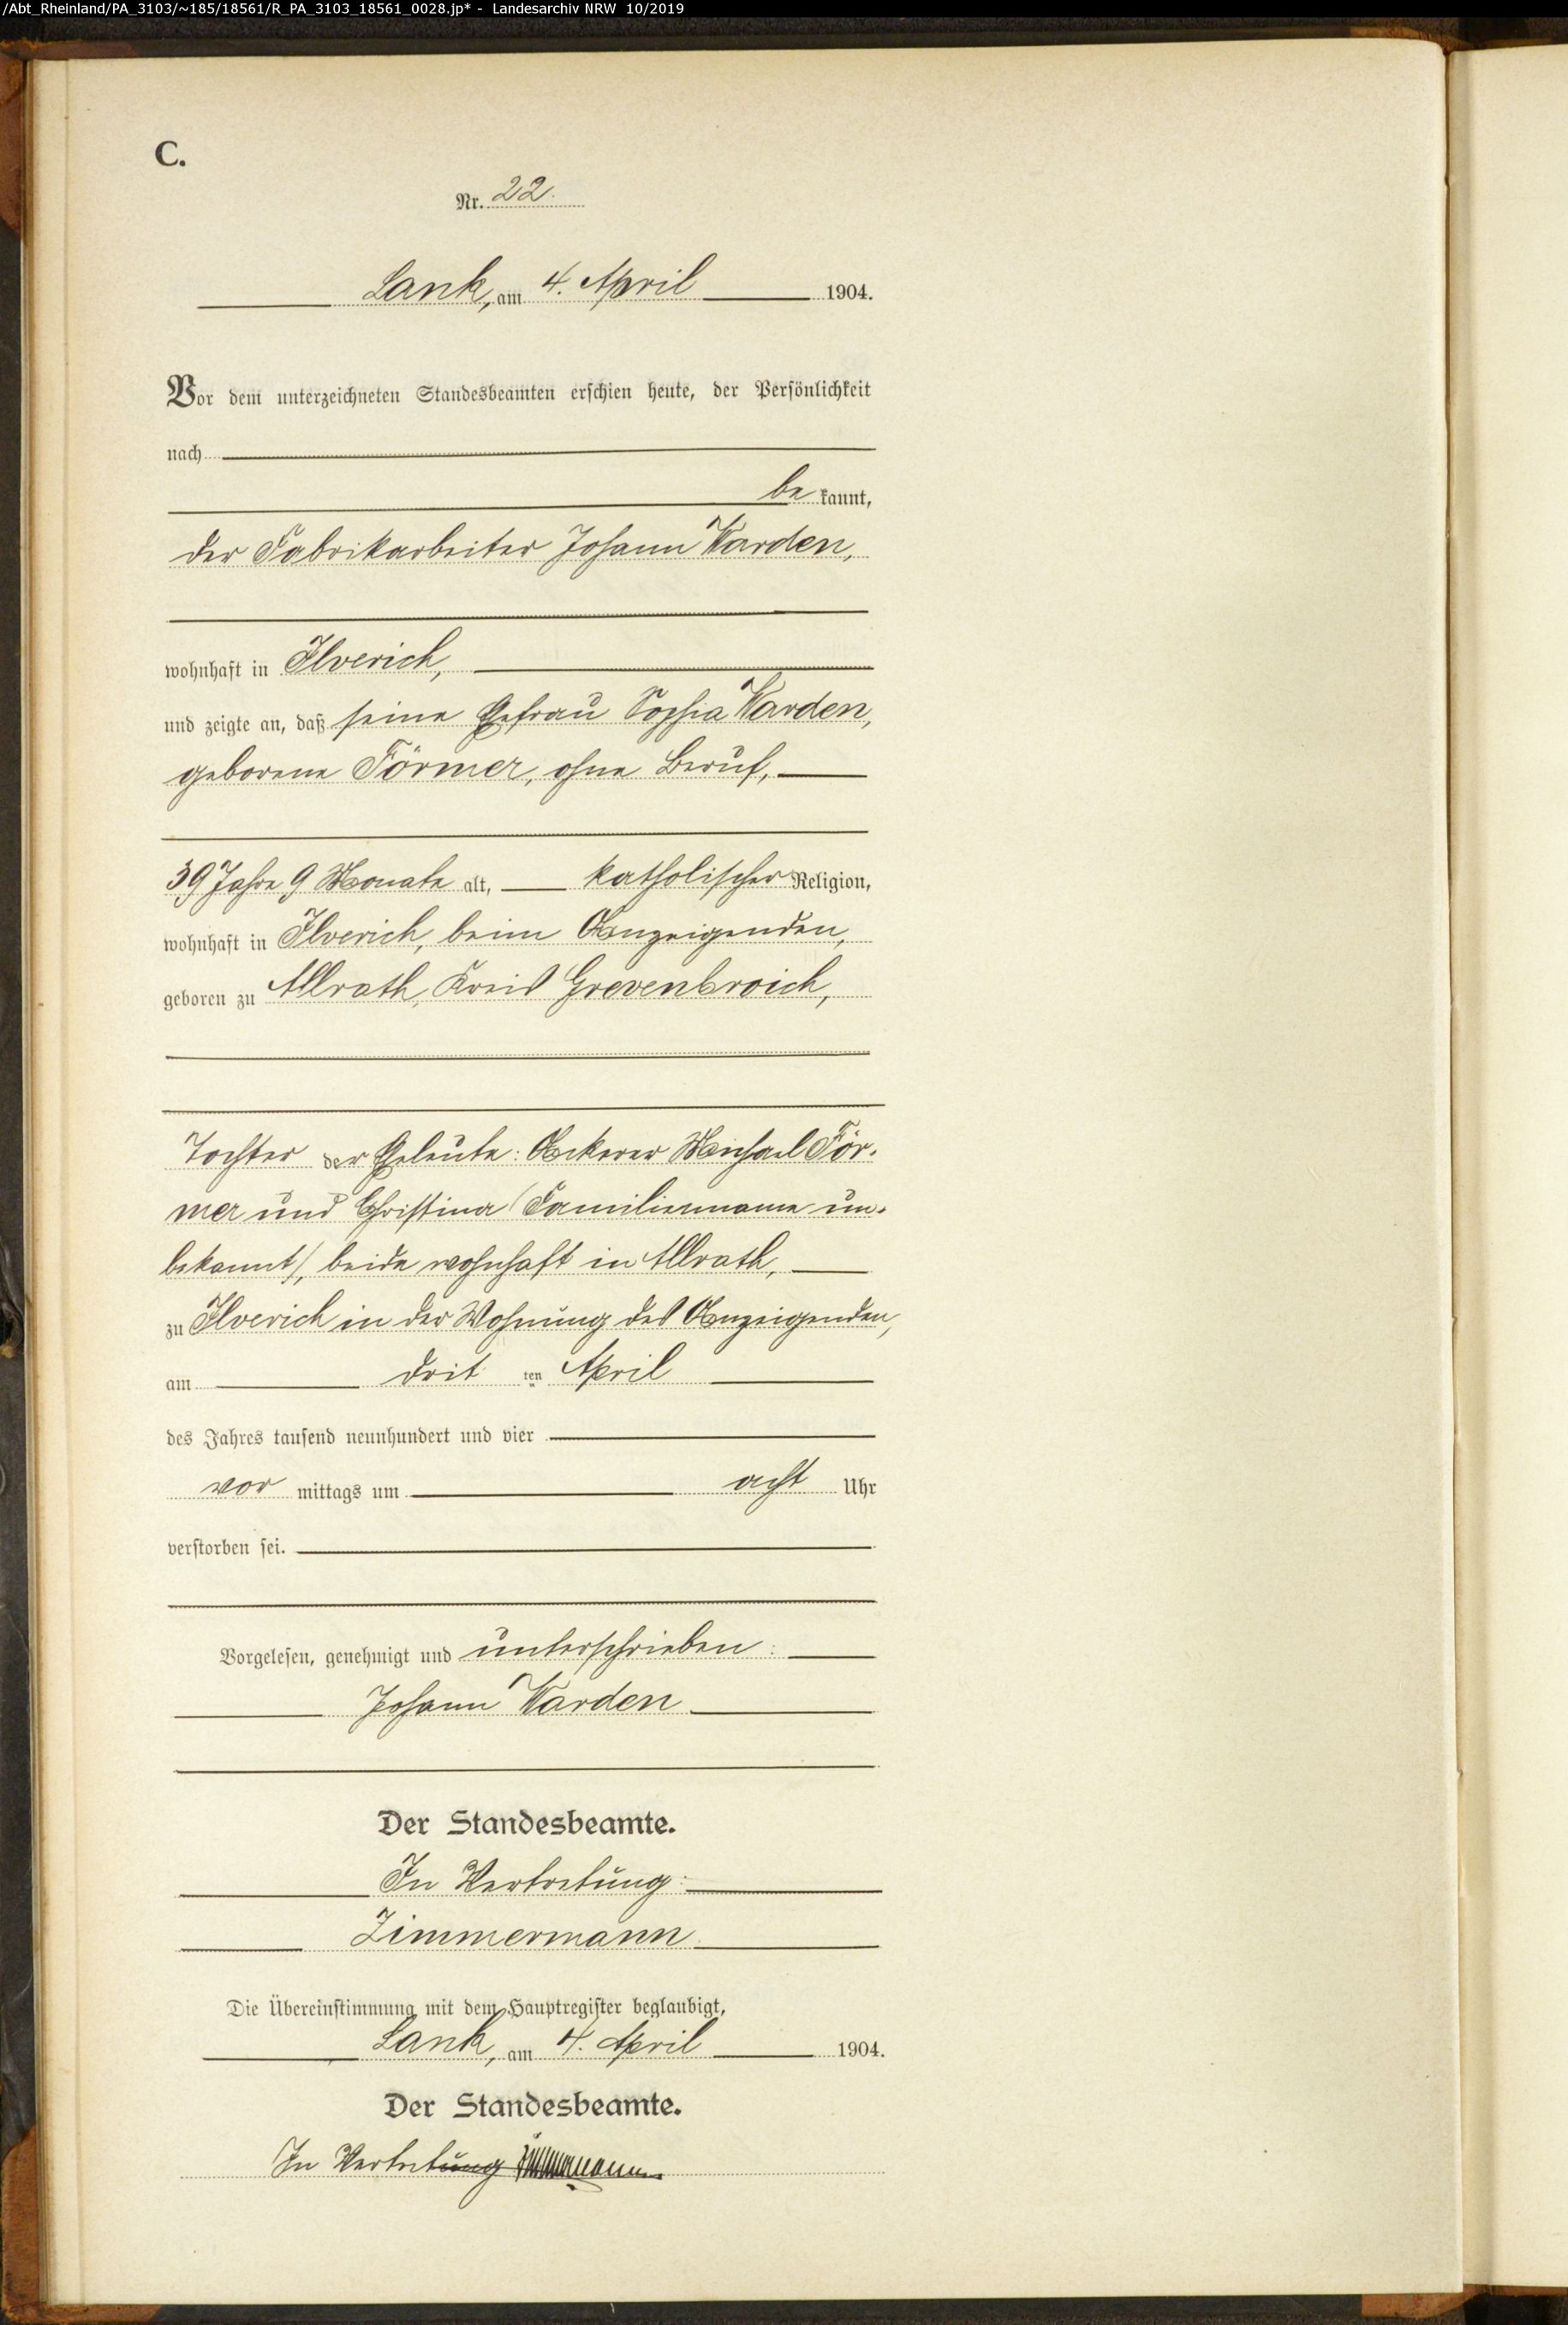 /Abt_Rheinland/PA_3103/~185/18561/R_PA_3103_18561_0028.jp* - Landesarchiv NRW 10/2019
C.
Nr. 22.
Lank, am 4. April 1904.
Vor dem unterzeichneten Standesbeamten erschien heute, der Persönlichkeit
nach
be kannt,
der Fabrikarbeiter Johann Karden,
wohnhaft in Ilverich,
und zeigte an, daß seine Ehefrau Sophia Karden,
geborene Förmer, ohne Beruf,
39 Jahre 9 Monate alt, katholischer Religion,
wohnhaft in Ilverich, beim Anzeigenden,
geboren zu Allrath, Kreis Grevenbroich,
Tochter der Eheleute: Ackerer Michael För-
mer und Christina (Familienname un-
bekannt), beide wohnhaft in Allrath,
zu Ilverich in der Wohnung des Anzeigenden,
am drit ten April
des Jahres tausend neunhundert und vier
vor mittags um acht Uhr
verstorben sei.
Vorgelesen, genehmigt und unterschrieben:
Johann Karden
Der Standesbeamte.
In Vertretung:
Zimmermann
Die Übereinstimmung mit dem Hauptregister beglaubigt,
Lank, am 4. April 1904.
Der Standesbeamte.
In Vertretung Zimmermann